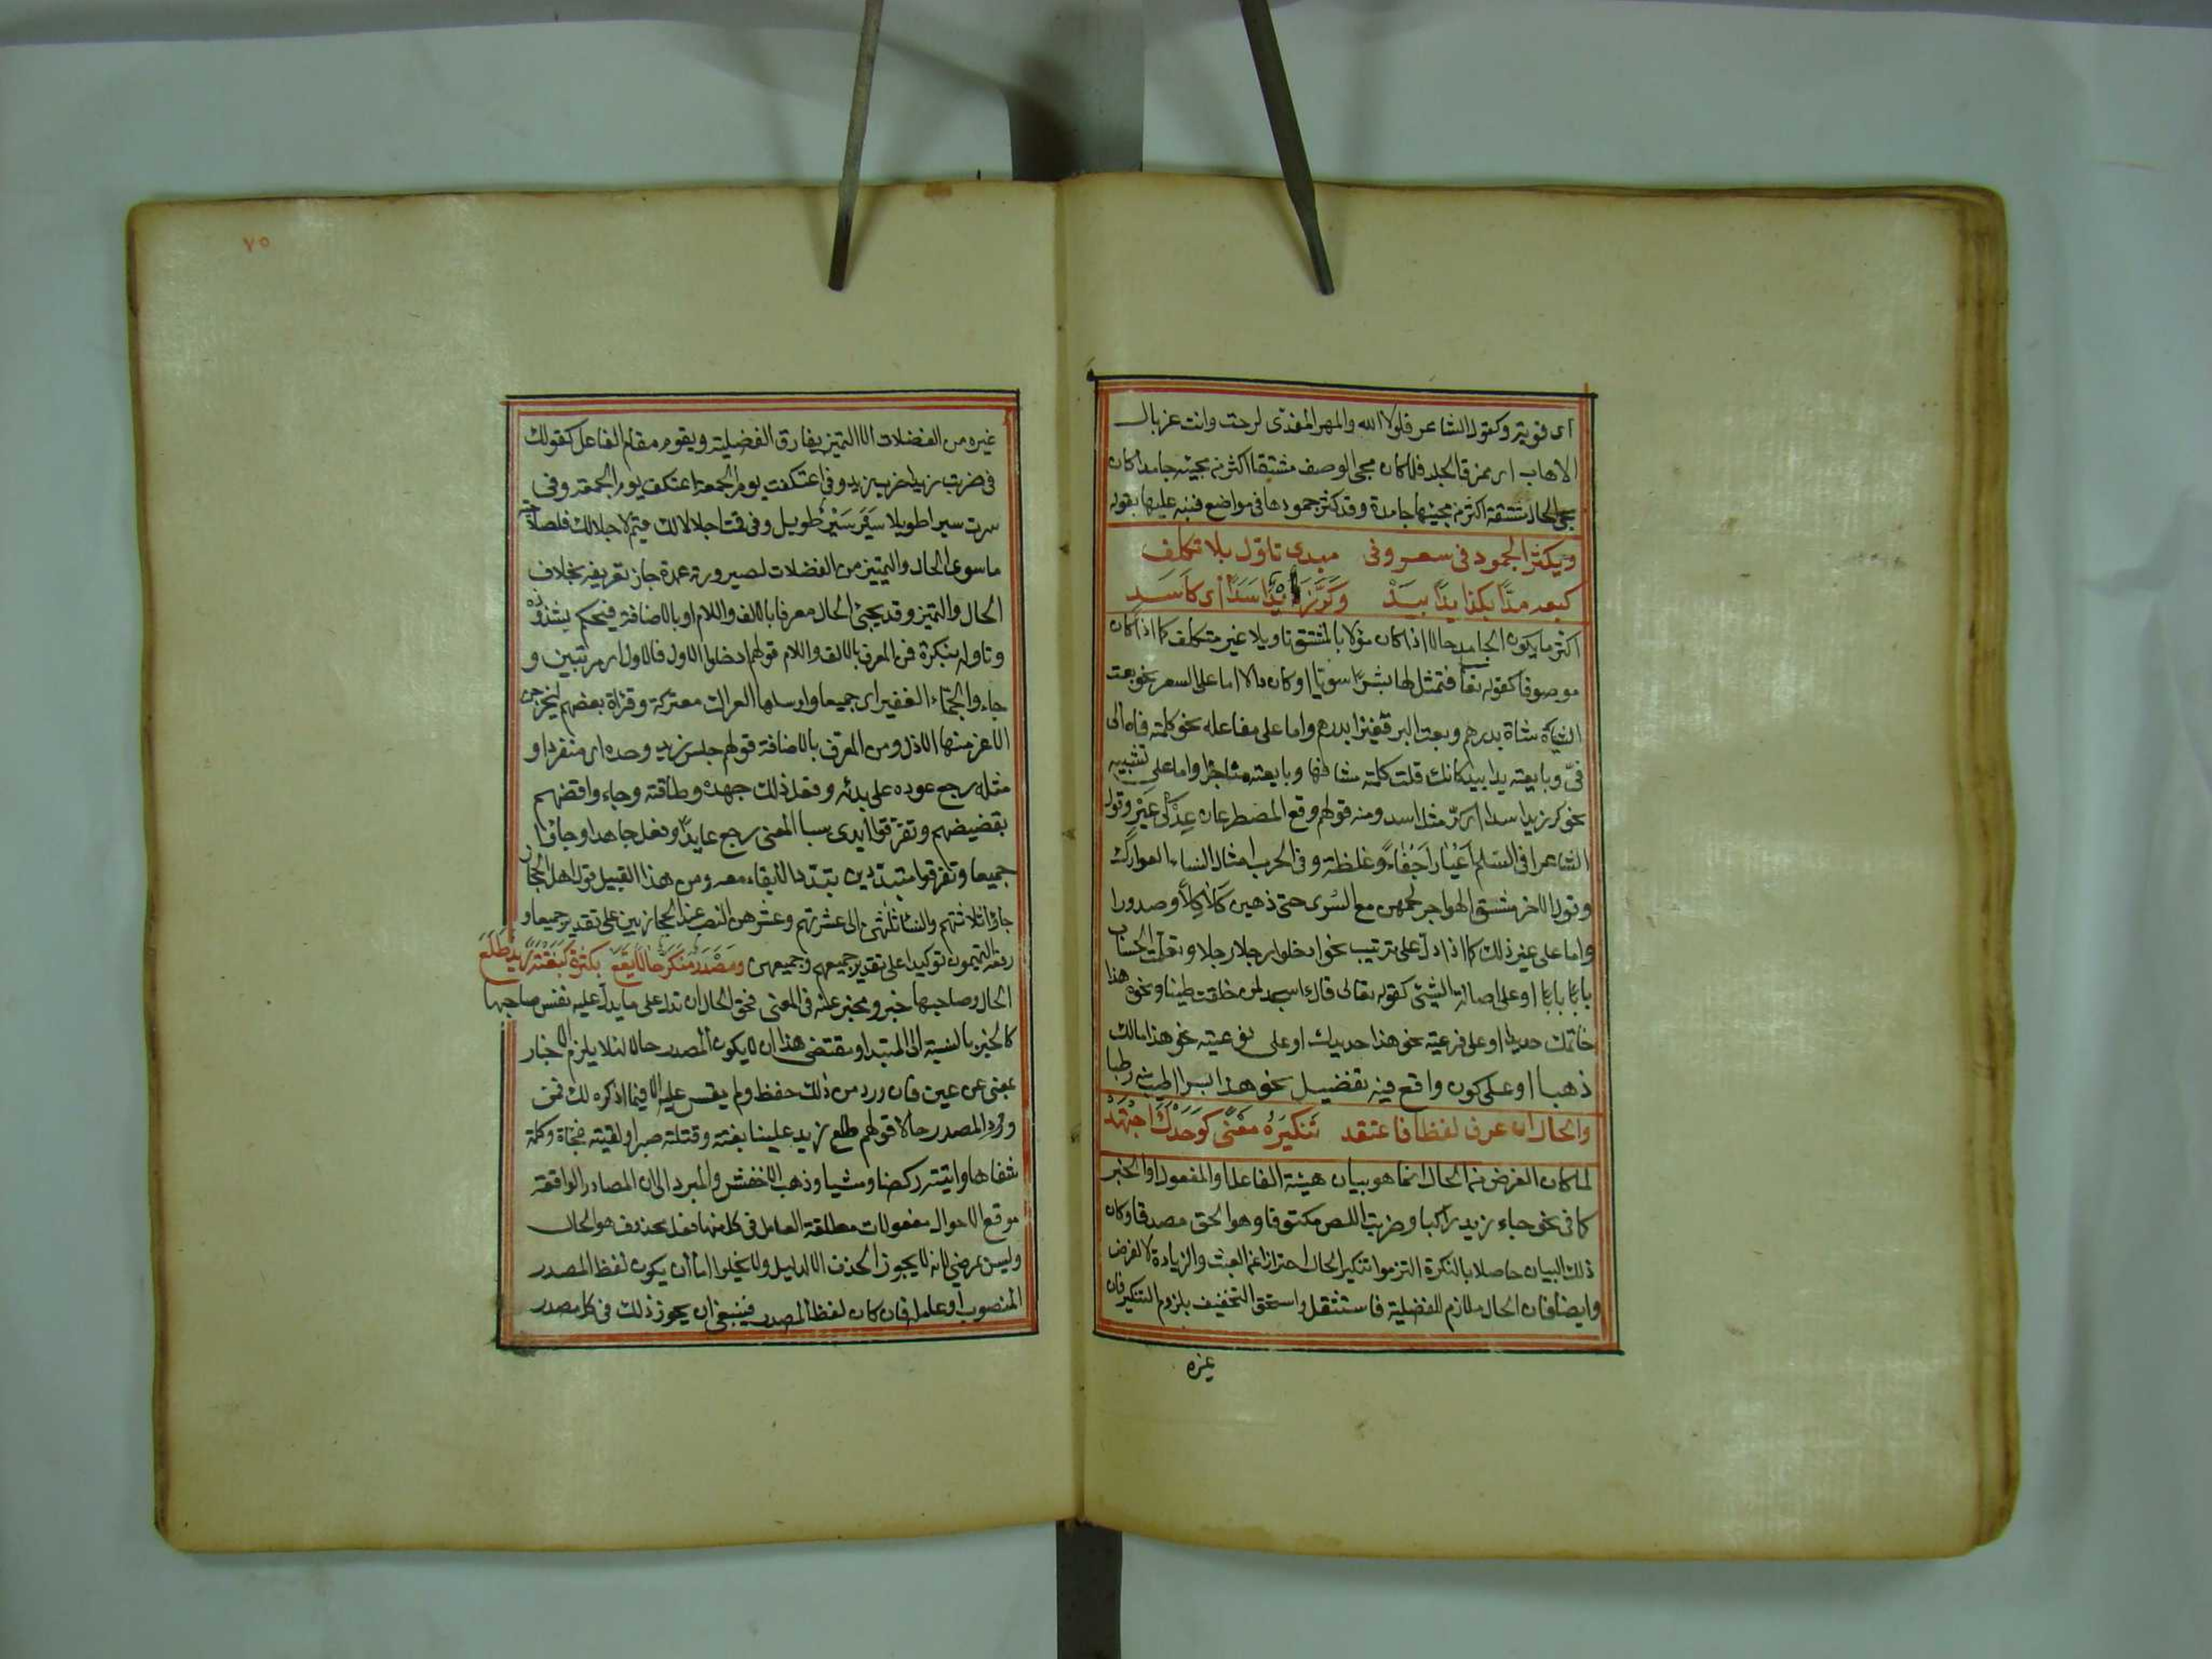 اى قوية وكقول الشاعر فلولا الله والمهر المفدّى لرحت وانت غربال
الاهاب اى ممزق الجلد فلما كان مجى الوصف مشتقا اكثر من مجيئه جامدا كان
مجى الحال مشتقة اكثر من مجيئها جامدة وقد كثر جمودها فى مواضع فنبه عليها بقوله
ويكثر الجمود فى سعر وفى مبدى تاوّل بلا تكلف
كبعه مدّا بكذا يدًا بيد وكرّ زيد اسدا اى كاسد
اكثر ما يكون الجامد حالا اذا كان مؤلا بالمشتق تاويلا غير متكلف كما اذا كان
موصوفا كقوله تعا فتمثل لها بشرًا سويا او كان دالا اما على السعر نحو بعت
الشاة شاة بدرهم وبعت البر قفيزا بدرهم واما على مفاعله نحو كلمته فاه الى
فىّ وبايعته يدا بيد كانك قلت كلمته مشافها وبايعته مناجزا واما على تشبيه
نحو كر زيد اسدا اى كرّ مثل اسد ومنه قولهم وقع المضطرعان عِدْلى عَيْر وقول
الشاعر افى السّلم اعيارا جُفاءً وغلظة وفى الحرب امثال النساء العوارك
وقول الاخر مشق الهواجر لحمهن مع السُرى حتى ذهبن كلاكلا وصدورا
واما على غير ذلك كما اذا دلّ على ترتيب نحو ادخلوا رجلا رجلا وتعلمت الحساب
بابًا بابًا او على اصالة الشئ كقوله تعالى قال ءاسجد لمن خلقت طينا ونحو هذا
خاتمك حديدا او على فرعيته نحو هذا حديدك او على نوعيته نحو هذا مالك
ذهبا او على كون واقع فيه تفضيل نحو هذا بسرا اطيب منه رطبا
والحال ان عرف لفظا فاعتقد تَنكيرَهُ مَعْنًى كَوَحْدَكَ اجْتَهِدْ
لما كان الغرض من الحال انما هو بيان هيئة الفاعل او المفعول او الخبر
كما فى نحو جاء زيد راكبا وضربت اللص مكتوفا وهو الحق مصدقا وكان
ذلك البيان حاصلا بالنكرة التزموا تنكير الحال احترازا عن العبث والزيادة لا لغرض
وايضا فان الحال ملازم للفضلية فاستثقل واستحق التخفيف بلزوم التنكير فان
غيره
٧٥
غيره من الفضلات الا التمييز يفارق الفضلية ويقوم مقام الفاعل كقولك
فى ضربت زيدا ضرب زيد وفى اعتكفت يوم الجمعة اعتكف يوم الجمعة وفى
سرت سيرا طويلا سِيَر سَيْرٌ طويل وفى قمت اجلالا لك قيم لاجلالك فلصلاحية
ماسوى الحال والتمييز من الفضلات لصيرورته عمدة جاز تعريفه بخلاف
الحال والتمييز وقد يجئ الحال معرفا بالالف واللام او بالاضافة فيحكم بشذوذه
وتاوله بنكرة فمن المعرف بالالف واللام قولهم ادخلوا الاول فالاول اى مرتبين و
جاءوا الجماء الغفير اى جميعا وارسلها العراك معتركة وقراة بعضهم ليخرجن
الاعز منها الاذل ومن المعرف بالاضافة قولهم جلس زيد وحده اى منفردا و
مثله رجع عوده على بدئه وفعل ذلك جهده وطاقته وجاءوا قضهم
بقضيضهم وتفرقوا ايدى سبا المعنى رجع عايدًا وفعل جاهدا وجاؤا
جميعا وتفرقوا متبدّدين تبدّدا لا بقاء معه ومن هذا القبيل قول اهل الحجاز
جاؤا ثلاثتهم والنساء ثلثهن الى عشرتهم وعشرهن النصب عند الحجازيين على تقدير جميعا و
رفعه التميمون توكيدا على تقدير جميعهم وجميعهن ومَصْدَرٌ مُنَكّرٌ حالًا يَقَعُ بكثرةٍ كبَغْتَةً زيدٌ طَلَعَ
الحال وصاحبها خبر ومخبر عنه فى المعنى فحق الحال ان تدل على ما يدل عليه نفس صاحبها
كالخبر بالنسبة الى المبتدا ومقتضى هذا ان لا يكون المصدر حالا لئلا يلزم الاخبار
بمعنى عن عين فان ورد من ذلك حفظ ولم يقس عليه الا فيما اذكره لك فمن
ورود المصدر حالا قولهم طلع زيد علينا بغتة وقتلته صبرا ولقيته فجاة وكلمته
شفاها واتيته ركضا ومشيا وذهب الاخفش والمبرد الى ان المصادر الواقعة
موقع الاحوال مفعولات مطلقة العامل فى كل منها فعل محذوف هو الحال
وليس بمرضي لانه لا يجوز الحذف الا لدليل ولا يخلوا اما ان يكون لفظ المصدر
المنصوب او عامله فان كان لفظ المصدر فينبغى ان يجوز ذلك فى كل مصدر